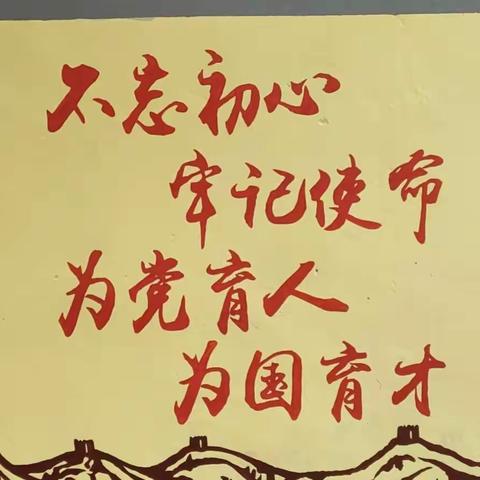 不忘初心
牢记使命
为党育人
为国育才